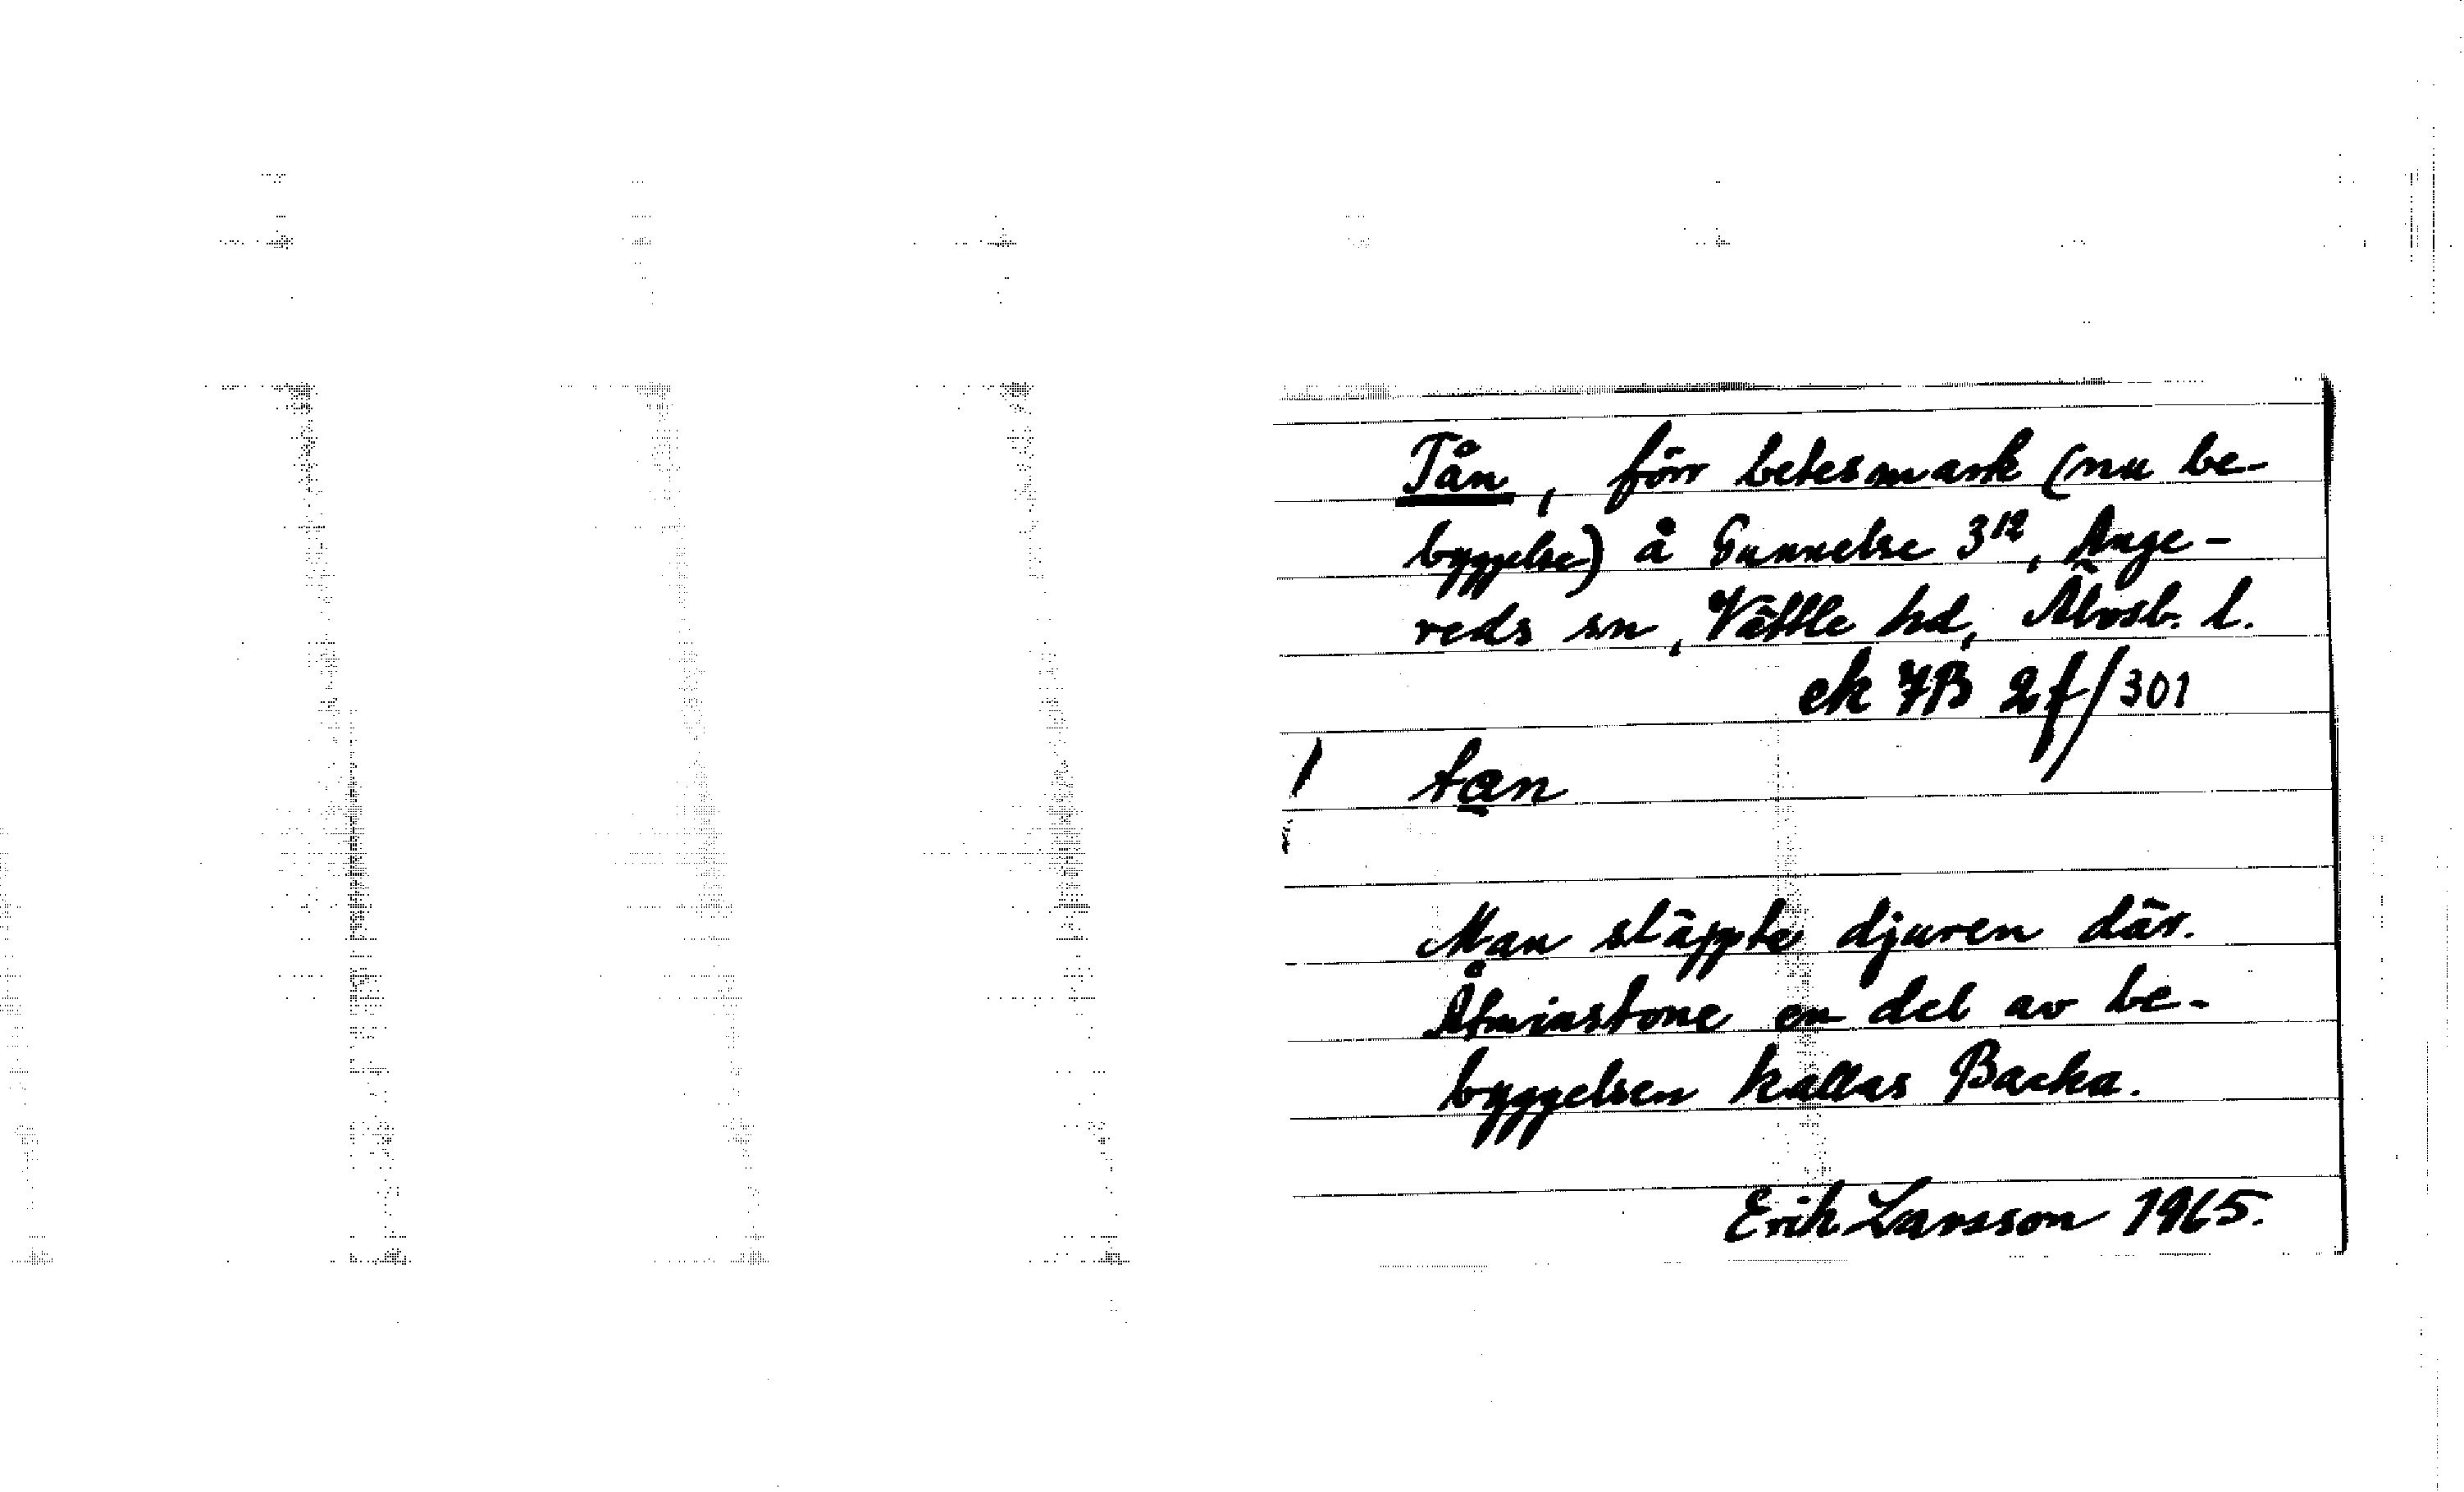 Tån, förr betesmark (nu be-
byggelse) å Gunnelse 3¹², Ange-
reds sn, Vättle hd, Älvsb. l.
ek 7B 2f/301
tan
Man släppte djuren där.
Åtminstone en del av be-
byggelsen kallas Backa.
Erik Larsson 1965.